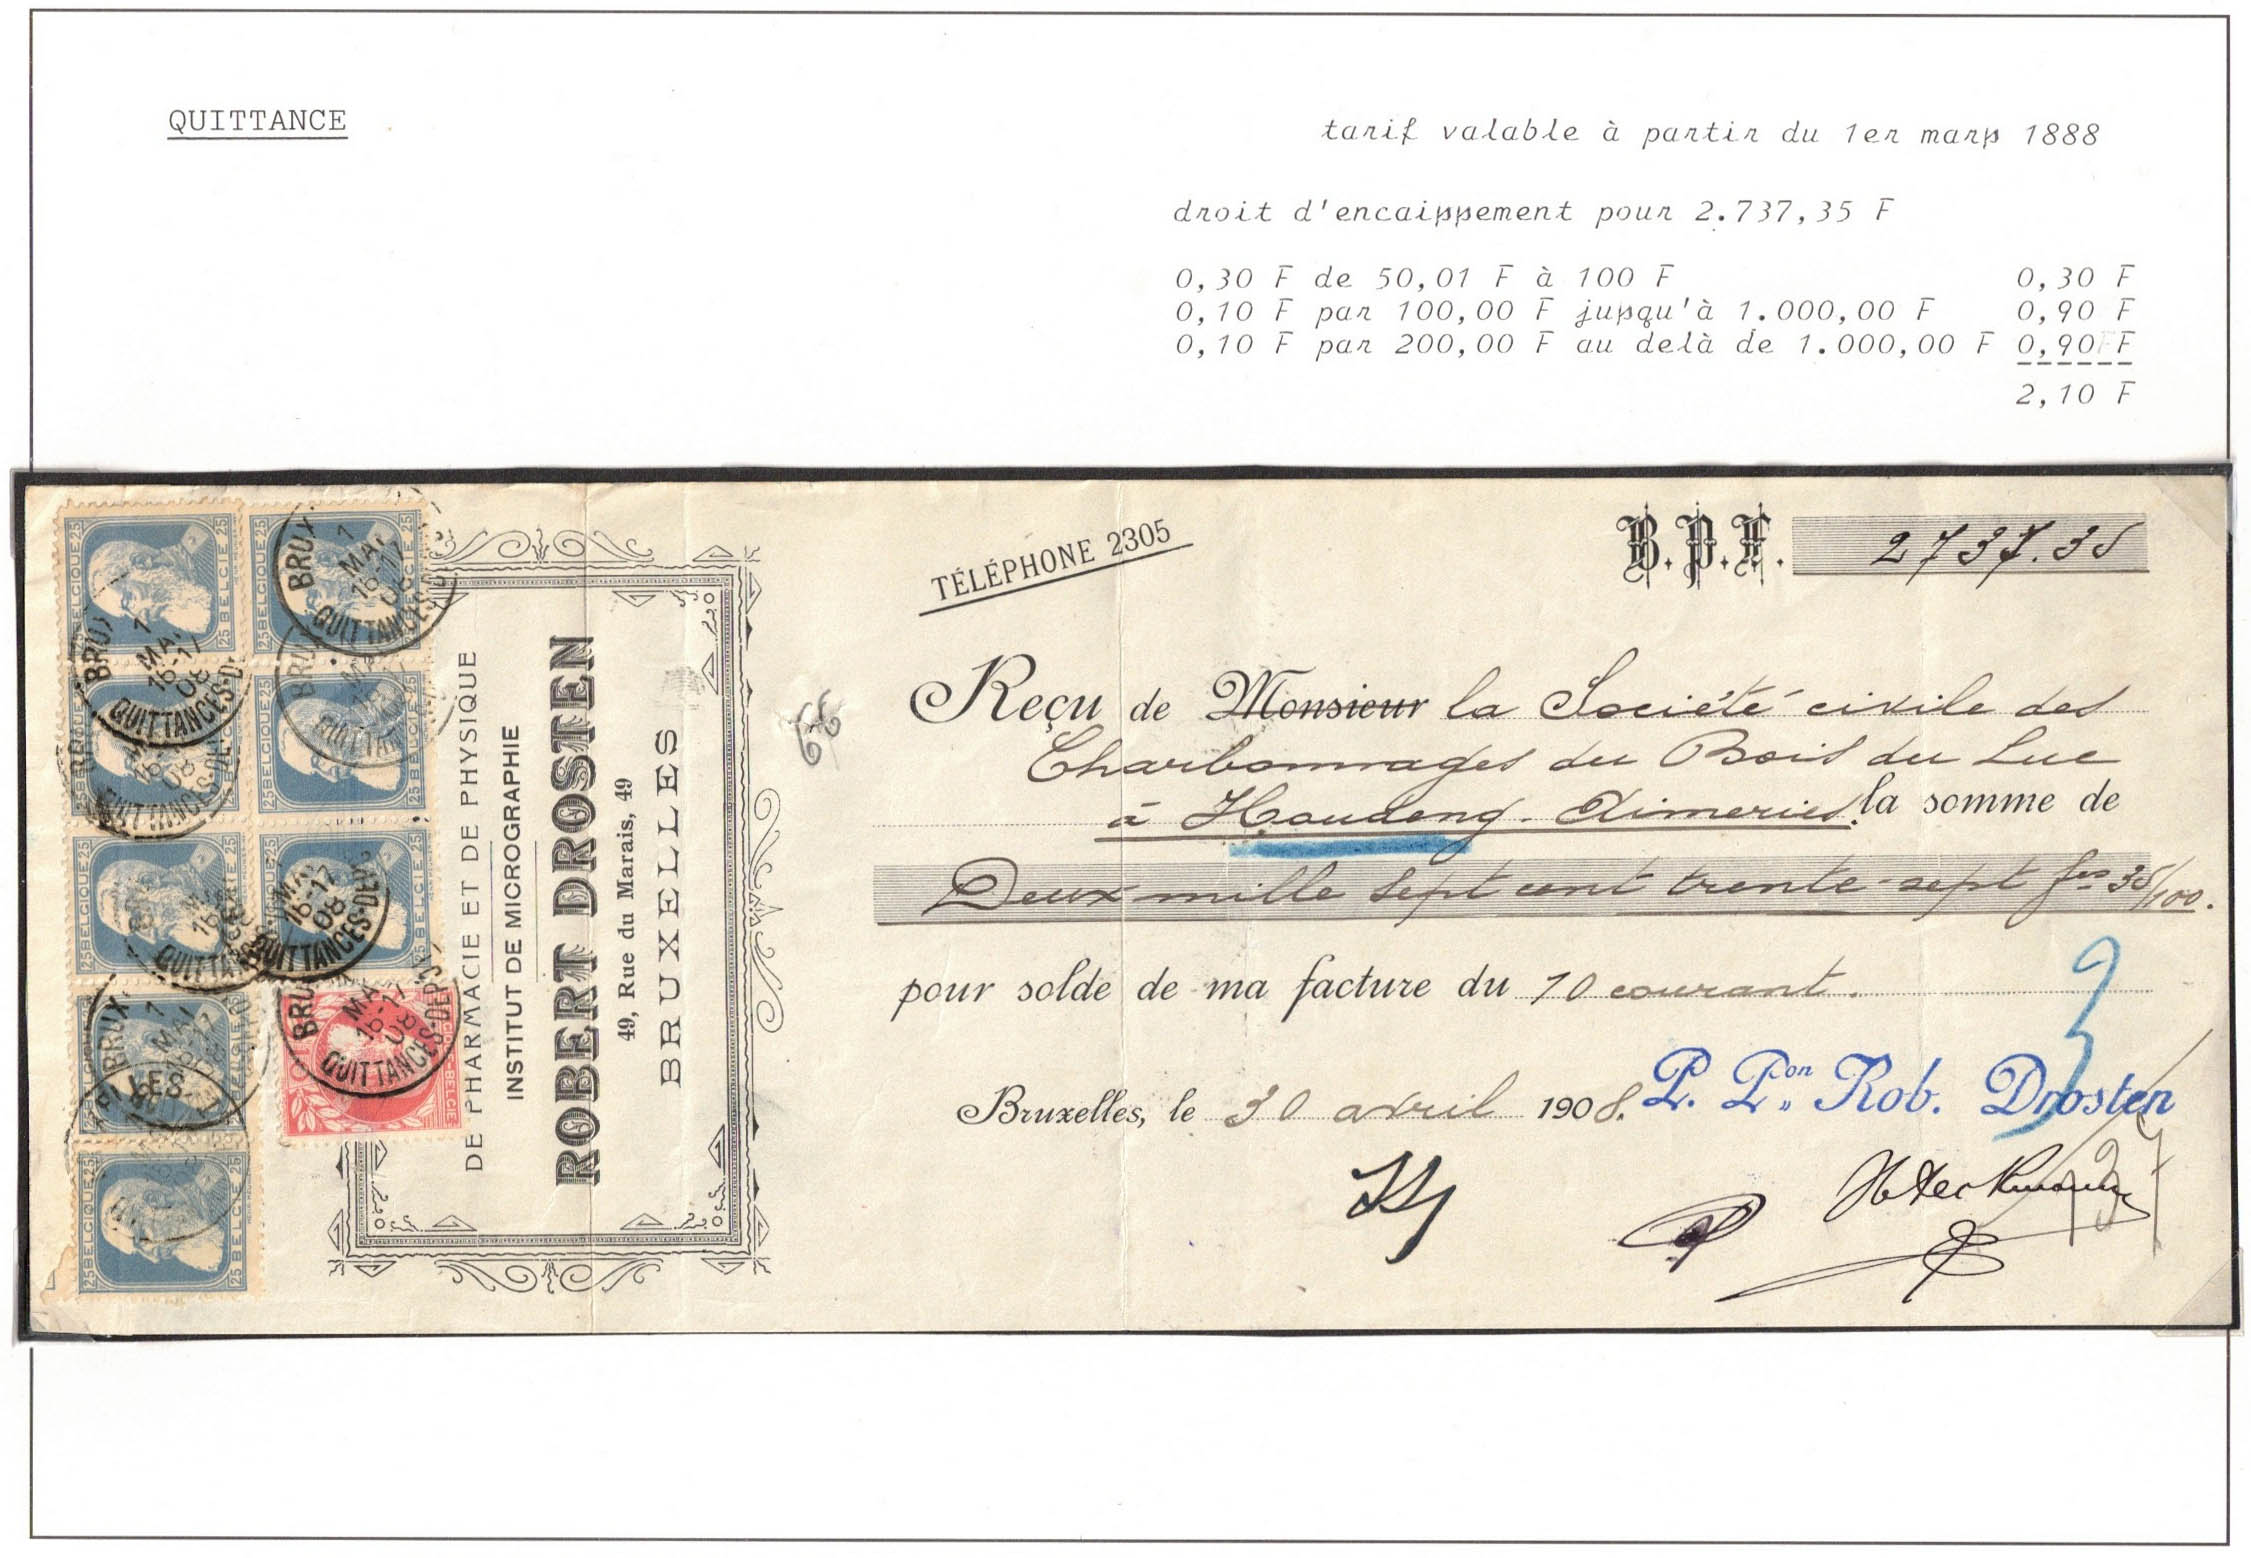 QUITTANCE
tarif valable à partir du 1er mars 1888
droit d'encaissement pour 2.737,35 F
0,30 F de 50,01 F à 100 F 0,30 F
0,10 F par 100,00 F jusqu'à 1.000,00 F 0,90 F
0,10 F par 200,00 F au delà de 1.000,00 F 0,90 F
2,10 F
TÉLÉPHONE 2305
B.P.F. 2737.35
Reçu de Monsieur la Société civile des
Charbonnages du Bois du Luc
à Houdeng-Aimeries. la somme de
Deux mille sept cent trente-sept frs 35/100.
pour solde de ma facture du 10 courant.
Bruxelles, le 30 avril 1908.
P. Pon Rob. Drosten
DE PHARMACIE ET DE PHYSIQUE
INSTITUT DE MICROGRAPHIE
ROBERT DROSTEN
49, Rue du Marais, 49
BRUXELLES
25 BELGIQUE 25
25 BELGIE 25
BRUX.
1 MAI
16-17
08
QUITTANCES-DÉP.